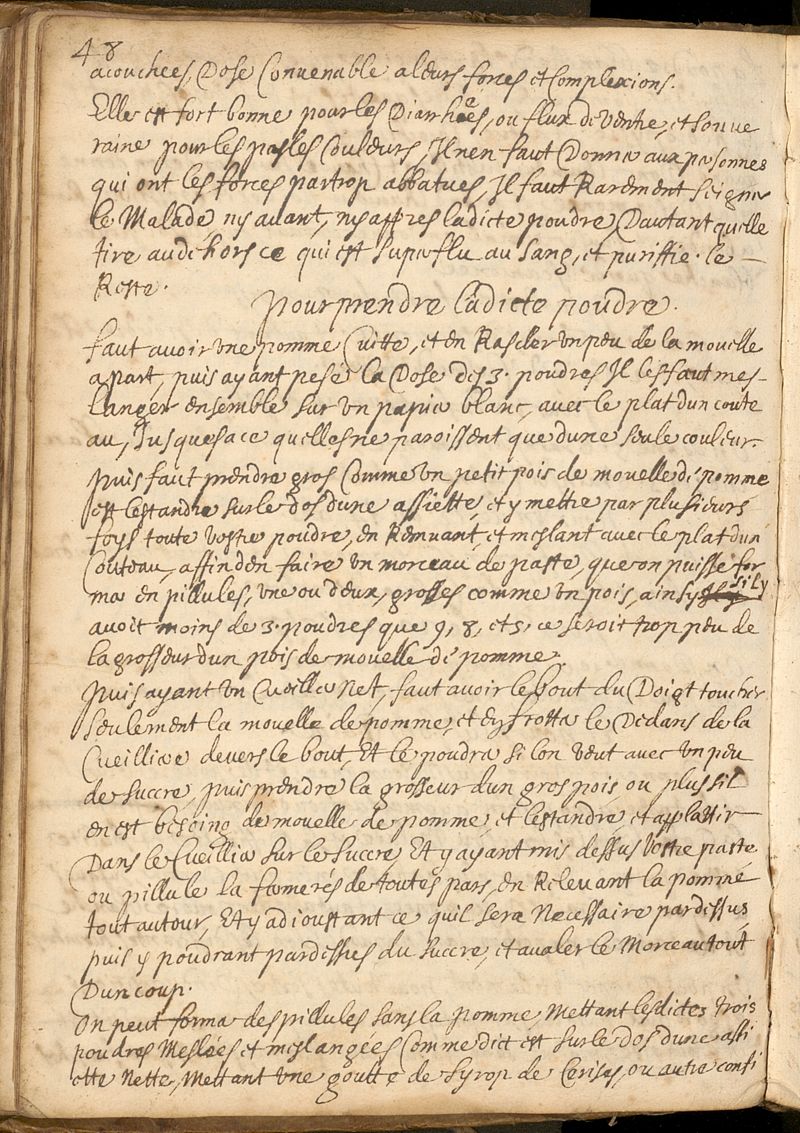 48
acouchees, Dose Convenable a leurs forces et Complexions.
Elle est fort bonne pour les Diarrhees, ou flux de ventre, et souve
raine pour les pasles Couleurs, Il nen faut Donner aux personnes
qui ont les forces par trop abbatues, Il faut Rarement seigner
le Malade ny avant, ny appres ladicte poudre, Dautant quelle
tire au dehors ce qui est superflu au sang, et puriffie le
Reste.
pour prendre ladicte poudre.
faut avoir une pomme Cuitte, et en Rascler un peu de la mouelle
a part, puis ayant pesé la Dose des 3. poudres Il les faut mes-
langer ensemble sur un papier blanc, avec le plat dun coute
au, Jusques a ce quelles ne paroissent que dune seule couleur.
puis faut prendre gros Comme un petit pois de mouelle de pomme
est lestandre sur le dos dune assiette, et y mettre par plusieurs
foys toute vostre poudre, en Remuant, et meslant avec le plat dun
Couteau, affin den faire un morceau de paste, que on puisse for
mer en pillules, une ou deux, grosses comme un pois, ainsy sily
avoit moins de 3. poudres que 9, 8, et 5, ce seroit trop peu de
la grosseur dun pois de mouelle de pomme.
puis ayant un Cueiller Net, faut avoir le bout du Doigt toucher
seulement la mouelle de pomme, et en frotter le Dedans de la
Cueilliere devers le bout, Et le poudrer si lon veut avec un peu
de succre, puis prendre la grosseur dun gros pois ou plus sil
en est besoing de mouelle de pomme, et lestandre, et applattir
Dans le Cueiller sur le succre, Et y ayant mis dessus vostre paste
ou pillule la fermerés de toutes pars, en Relevant la pomme
tout autour, Et y adioustant ce quil sera Necessaire par dessus,
puis y poudrant par dessus du succre, et avaler le Morceau tout
Dun coup.
On peut former des pillules sans la pomme, Mettant lesdictes trois
poudres Meslées et meslangées Comme dict est sur le dos dune assi
ette Nette, Mettant une goutte de syrop de Cerises, ou autre confi